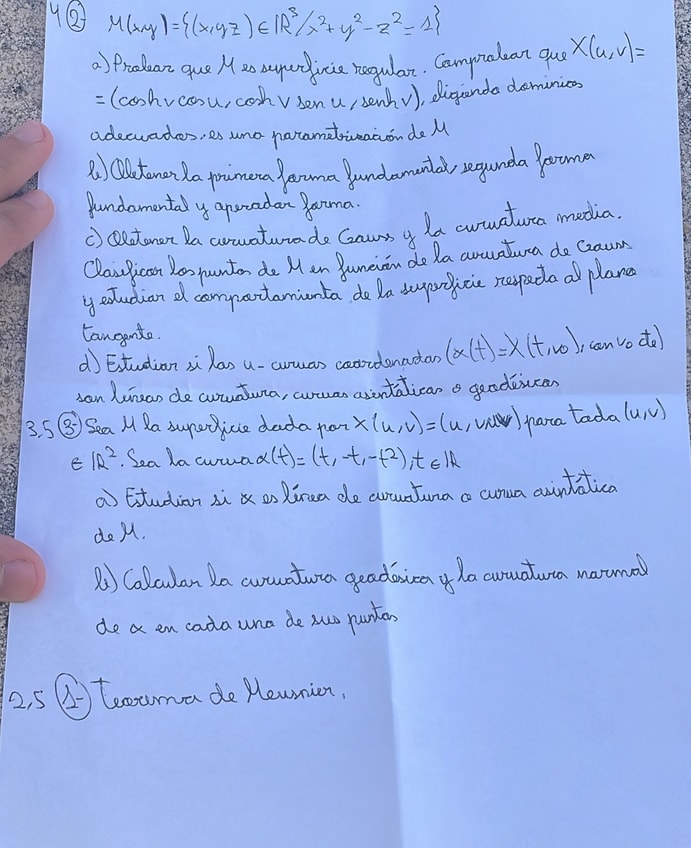 4 2 M(x,y)={(x,y,z)∈ℝ³/x²+y²-z²=1}
a) Probar que M es superficie regular. Comprobar que X(u,v)=
=(cosh v cos u, cosh v sen u, senh v), eligiendo dominios
adecuados, es una parametrización de M
b) Obtener la primera forma fundamental, segunda forma
fundamental y operador forma.
c) Obtener la curvatura de Gauss y la curvatura media.
Clasificar los puntos de M en función de la curvatura de Gauss
y estudiar el comportamiento de la superficie respecto al plano
tangente.
d) Estudiar si las u-curvas coordenadas (α(t)=X(t,v₀), con v₀ cte)
son líneas de curvatura, curvas asintóticas o geodésicas
3,5 3- Sea M la superficie dada por X(u,v)=(u, v, uv) para toda (u,v)
∈ ℝ². Sea la curva α(t)=(t, -t, -t²), t∈ℝ
a) Estudiar si α es línea de curvatura o curva asintótica
de M.
b) Calcular la curvatura geodésica y la curvatura normal
de α en cada uno de sus puntos
2,5 1- Teorema de Meusnier.